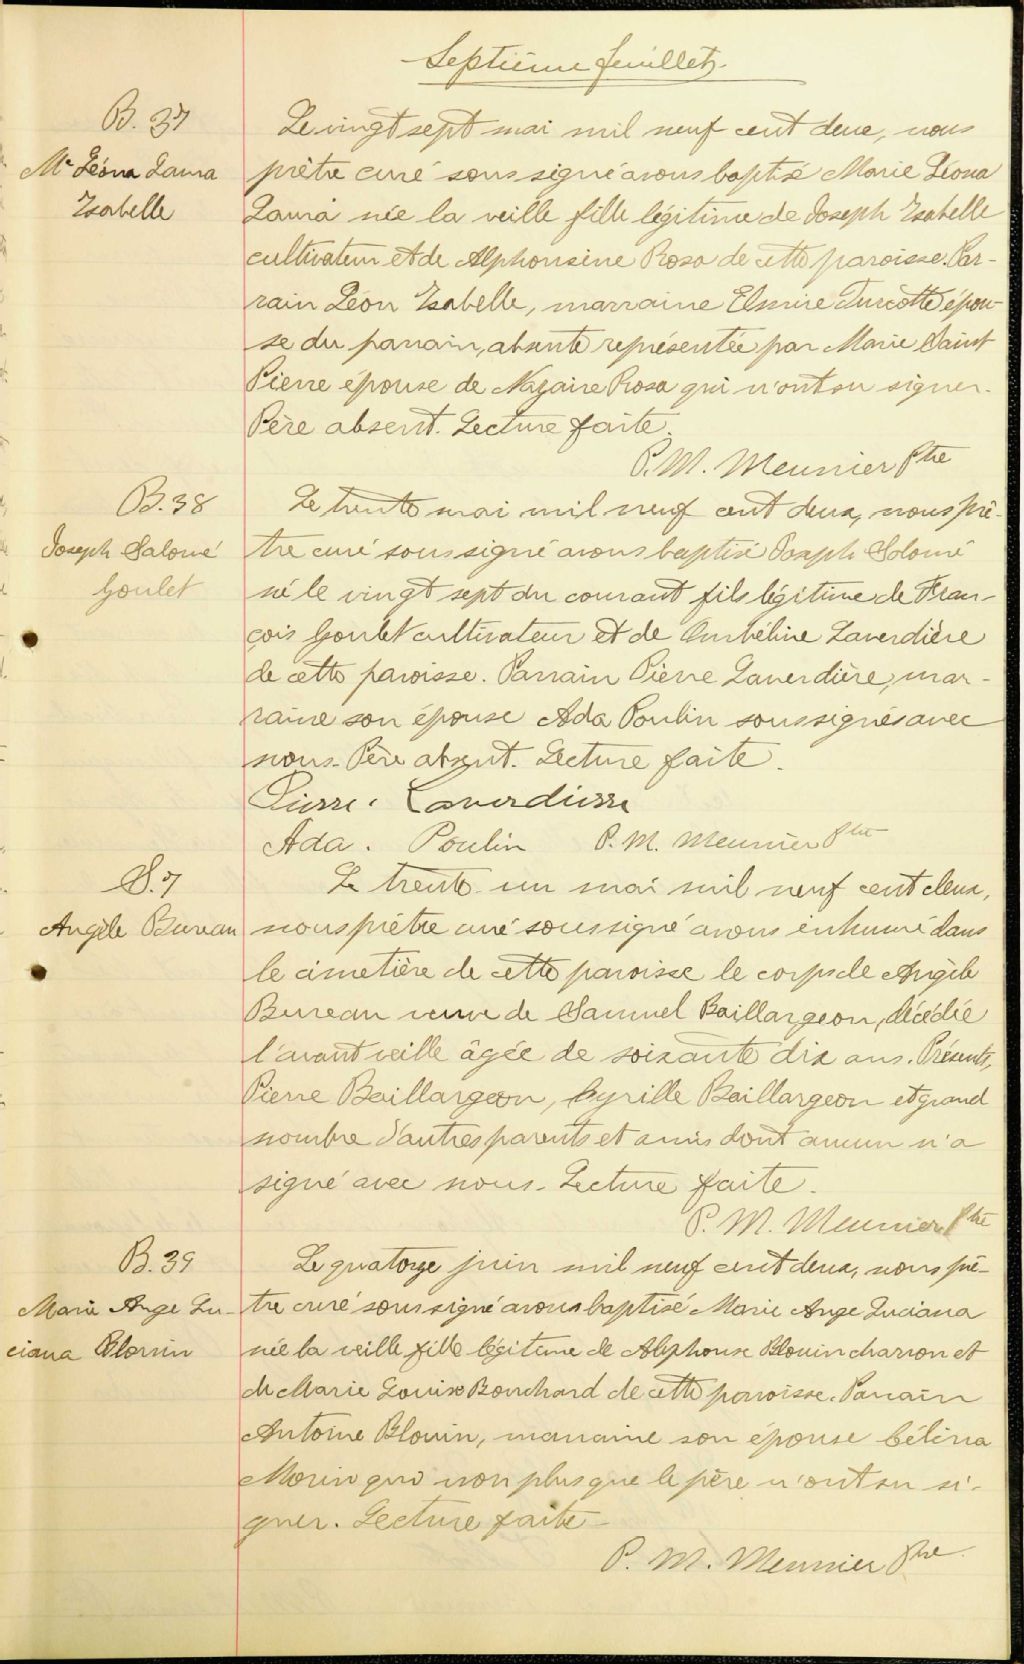 Septième feuillet.
B. 37
Mie Léona Laura
Isabelle
Le vingt sept mai mil neuf cent deux, nous
prêtre curé soussigné avons baptisé Marie Léona
Laura née la veille fille légitime de Joseph Isabelle
cultivateur et de Alphonsine Rosa de cette paroisse. Par-
rain Léon Isabelle, marraine Elmire Turcotte épou-
se du parrain, absente représentée par Marie Saint
Pierre épouse de Nazaire Rosa qui n'ont su signer.
Père absent. Lecture faite.
P. M. Meunier Ptre
B. 38
Joseph Salomé
Goulet
Le trente mai mil neuf cent deux, nous prê-
tre curé soussigné avons baptisé Joseph Salomé
né le vingt sept du courant fils légitime de Fran-
çois Goulet cultivateur et de Ombéline Laverdière
de cette paroisse. Parrain Pierre Laverdière, mar-
raine son épouse Ada Poulin soussignés avec
nous. Père absent. Lecture faite.
Pierre. Laverdierre
Ada. Poulin P. M. Meunier Ptre
S. 7
Angèle Bureau
Le trente un mai mil neuf cent deux,
nous prêtre curé soussigné avons inhumé dans
le cimetière de cette paroisse le corps de Angèle
Bureau veuve de Samuel Baillargeon, décédée
l'avant veille âgée de soixante dix ans. Présents,
Pierre Baillargeon, Cyrille Baillargeon et grand
nombre d'autres parents et amis dont aucun n'a
signé avec nous. Lecture faite.
P. M. Meunier Ptre
B. 39
Marie Ange Lu-
ciana Blouin
Le quatorze juin mil neuf cent deux, nous prê-
tre curé soussigné avons baptisé Marie Ange Luciana
née la veille fille légitime de Alphonse Blouin charron et
de Marie Louise Bouchard de cette paroisse. Parrain
Antoine Blouin, marraine son épouse Célina
Morin qui non plus que le père n'ont su si-
gner. Lecture faite
P. M. Meunier Ptre